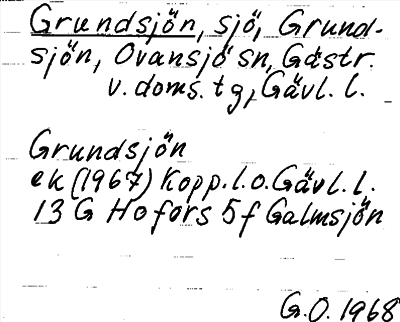 Grundsjön, sjö, Grund-
sjön, Ovansjö sn, Gästr.
v. doms. tg, Gävl. l.
Grundsjön
ek (1967) Kopp. l. o. Gävl. l.
13 G Hofors 5 f Galmsjön
G.O. 1968